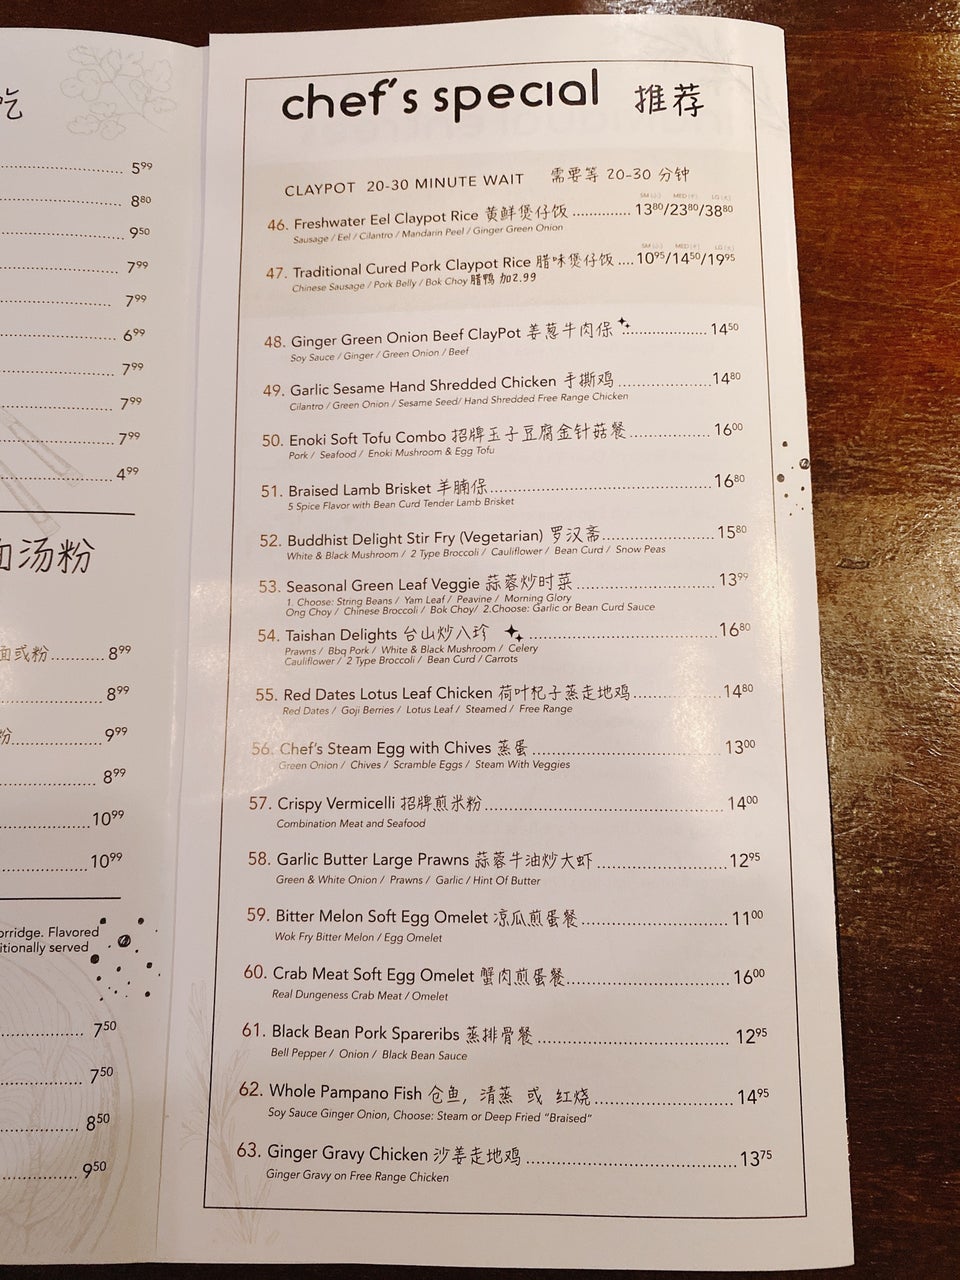 吃
5.99
8.80
9.50
7.99
7.99
6.99
7.99
7.99
7.99
4.99
面汤粉
面或粉 8.99
8.99
粉 9.99
8.99
10.99
10.99
orridge. Flavored
itionally served
7.50
7.50
8.50
9.50
chef's special 推荐
CLAYPOT 20-30 MINUTE WAIT 需要等 20-30 分钟
SM (小) MED (中) LG (大)
46. Freshwater Eel Claypot Rice 黄鲜煲仔饭 13.80/23.80/38.80
Sausage / Eel / Cilantro / Mandarin Peel / Ginger Green Onion
SM (小) MED (中) LG (大)
47. Traditional Cured Pork Claypot Rice 腊味煲仔饭 10.95/14.50/19.95
Chinese Sausage / Pork Belly / Bok Choy 腊鸭 加2.99
48. Ginger Green Onion Beef ClayPot 姜葱牛肉保 14.50
Soy Sauce / Ginger / Green Onion / Beef
49. Garlic Sesame Hand Shredded Chicken 手撕鸡 14.80
Cilantro / Green Onion / Sesame Seed/ Hand Shredded Free Range Chicken
50. Enoki Soft Tofu Combo 招牌玉子豆腐金针菇餐 16.00
Pork / Seafood / Enoki Mushroom & Egg Tofu
51. Braised Lamb Brisket 羊腩保 16.80
5 Spice Flavor with Bean Curd Tender Lamb Brisket
52. Buddhist Delight Stir Fry (Vegetarian) 罗汉斋 15.80
White & Black Mushroom / 2 Type Broccoli / Cauliflower / Bean Curd / Snow Peas
53. Seasonal Green Leaf Veggie 蒜蓉炒时菜 13.99
1. Choose: String Beans / Yam Leaf / Peavine / Morning Glory
Ong Choy / Chinese Broccoli / Bok Choy/ 2.Choose: Garlic or Bean Curd Sauce
54. Taishan Delights 台山炒八珍 16.80
Prawns / Bbq Pork / White & Black Mushroom / Celery
Cauliflower / 2 Type Broccoli / Bean Curd / Carrots
55. Red Dates Lotus Leaf Chicken 荷叶杞子蒸走地鸡 14.80
Red Dates / Goji Berries / Lotus Leaf / Steamed / Free Range
56. Chef's Steam Egg with Chives 蒸蛋 13.00
Green Onion / Chives / Scramble Eggs / Steam With Veggies
57. Crispy Vermicelli 招牌煎米粉 14.00
Combination Meat and Seafood
58. Garlic Butter Large Prawns 蒜蓉牛油炒大虾 12.95
Green & White Onion / Prawns / Garlic / Hint Of Butter
59. Bitter Melon Soft Egg Omelet 凉瓜煎蛋餐 11.00
Wok Fry Bitter Melon / Egg Omelet
60. Crab Meat Soft Egg Omelet 蟹肉煎蛋餐 16.00
Real Dungeness Crab Meat / Omelet
61. Black Bean Pork Spareribs 蒸排骨餐 12.95
Bell Pepper / Onion / Black Bean Sauce
62. Whole Pampano Fish 仓鱼, 清蒸 或 红烧 14.95
Soy Sauce Ginger Onion, Choose: Steam or Deep Fried "Braised"
63. Ginger Gravy Chicken 沙姜走地鸡 13.75
Ginger Gravy on Free Range Chicken